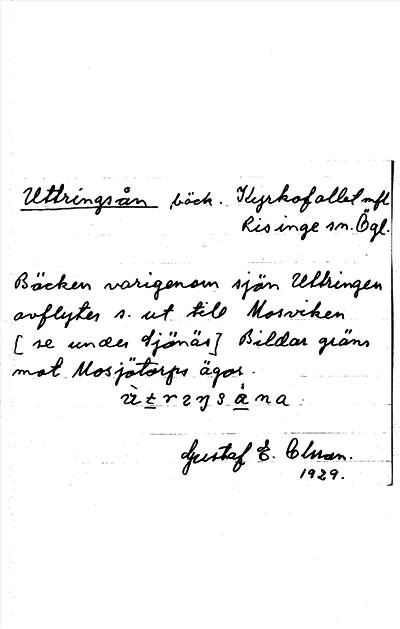 Uttringsån bäck. Kyrkofallet mfl
Risinge sn. Ögl.
Bäcken varigenom sjön Uttringen
avflyter s. ut till Mosviken
[se under Sjönäs] Bildar gräns
mot Mosjötorps ägor.
Gustaf E.
1929.